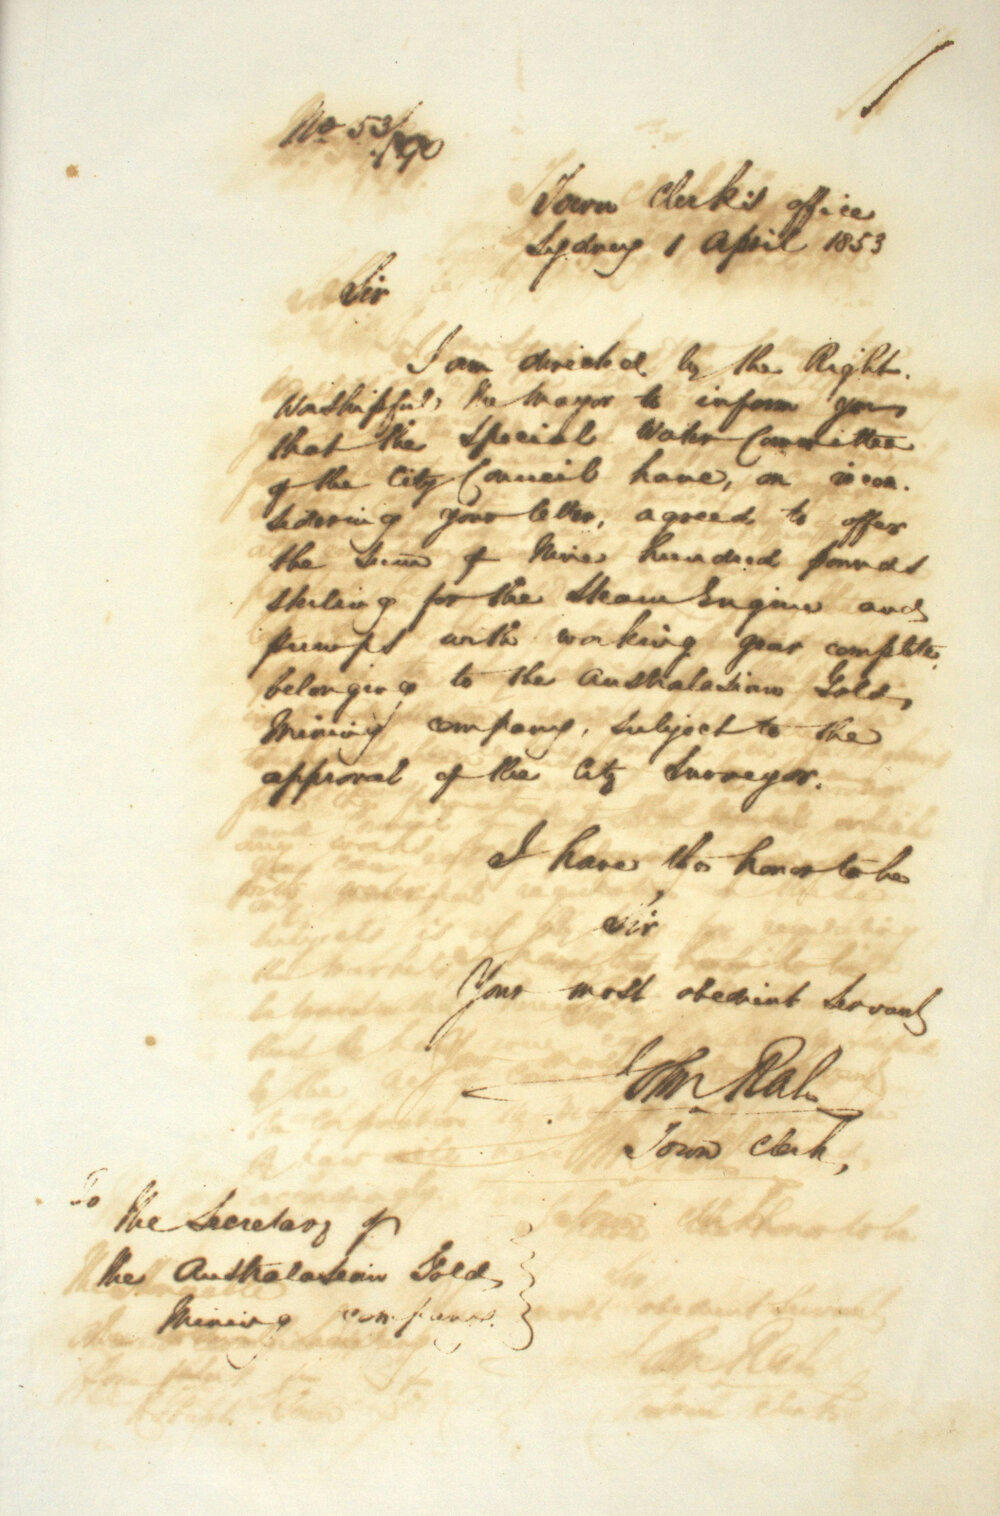 No 53/190
Town Clerk's office
Sydney 1 April 1853
Sir
I am directed by the Right
Worshipful, the Mayor to inform you
that the Special Water Committee
of the City Council have, on recon-
sidering your letter, agreed to offer
the Sum of Nine hundred pounds
sterling for the Steam Engine and
pumps with working gear complete,
belonging to the Australasian Gold
Mining company, subject to the
approval of the City Surveyor.
I have the honor to be
Sir
Your most obedient Servant
John Rae
Town Clerk,
To
the Secretary of
the Australasian Gold
Mining company.